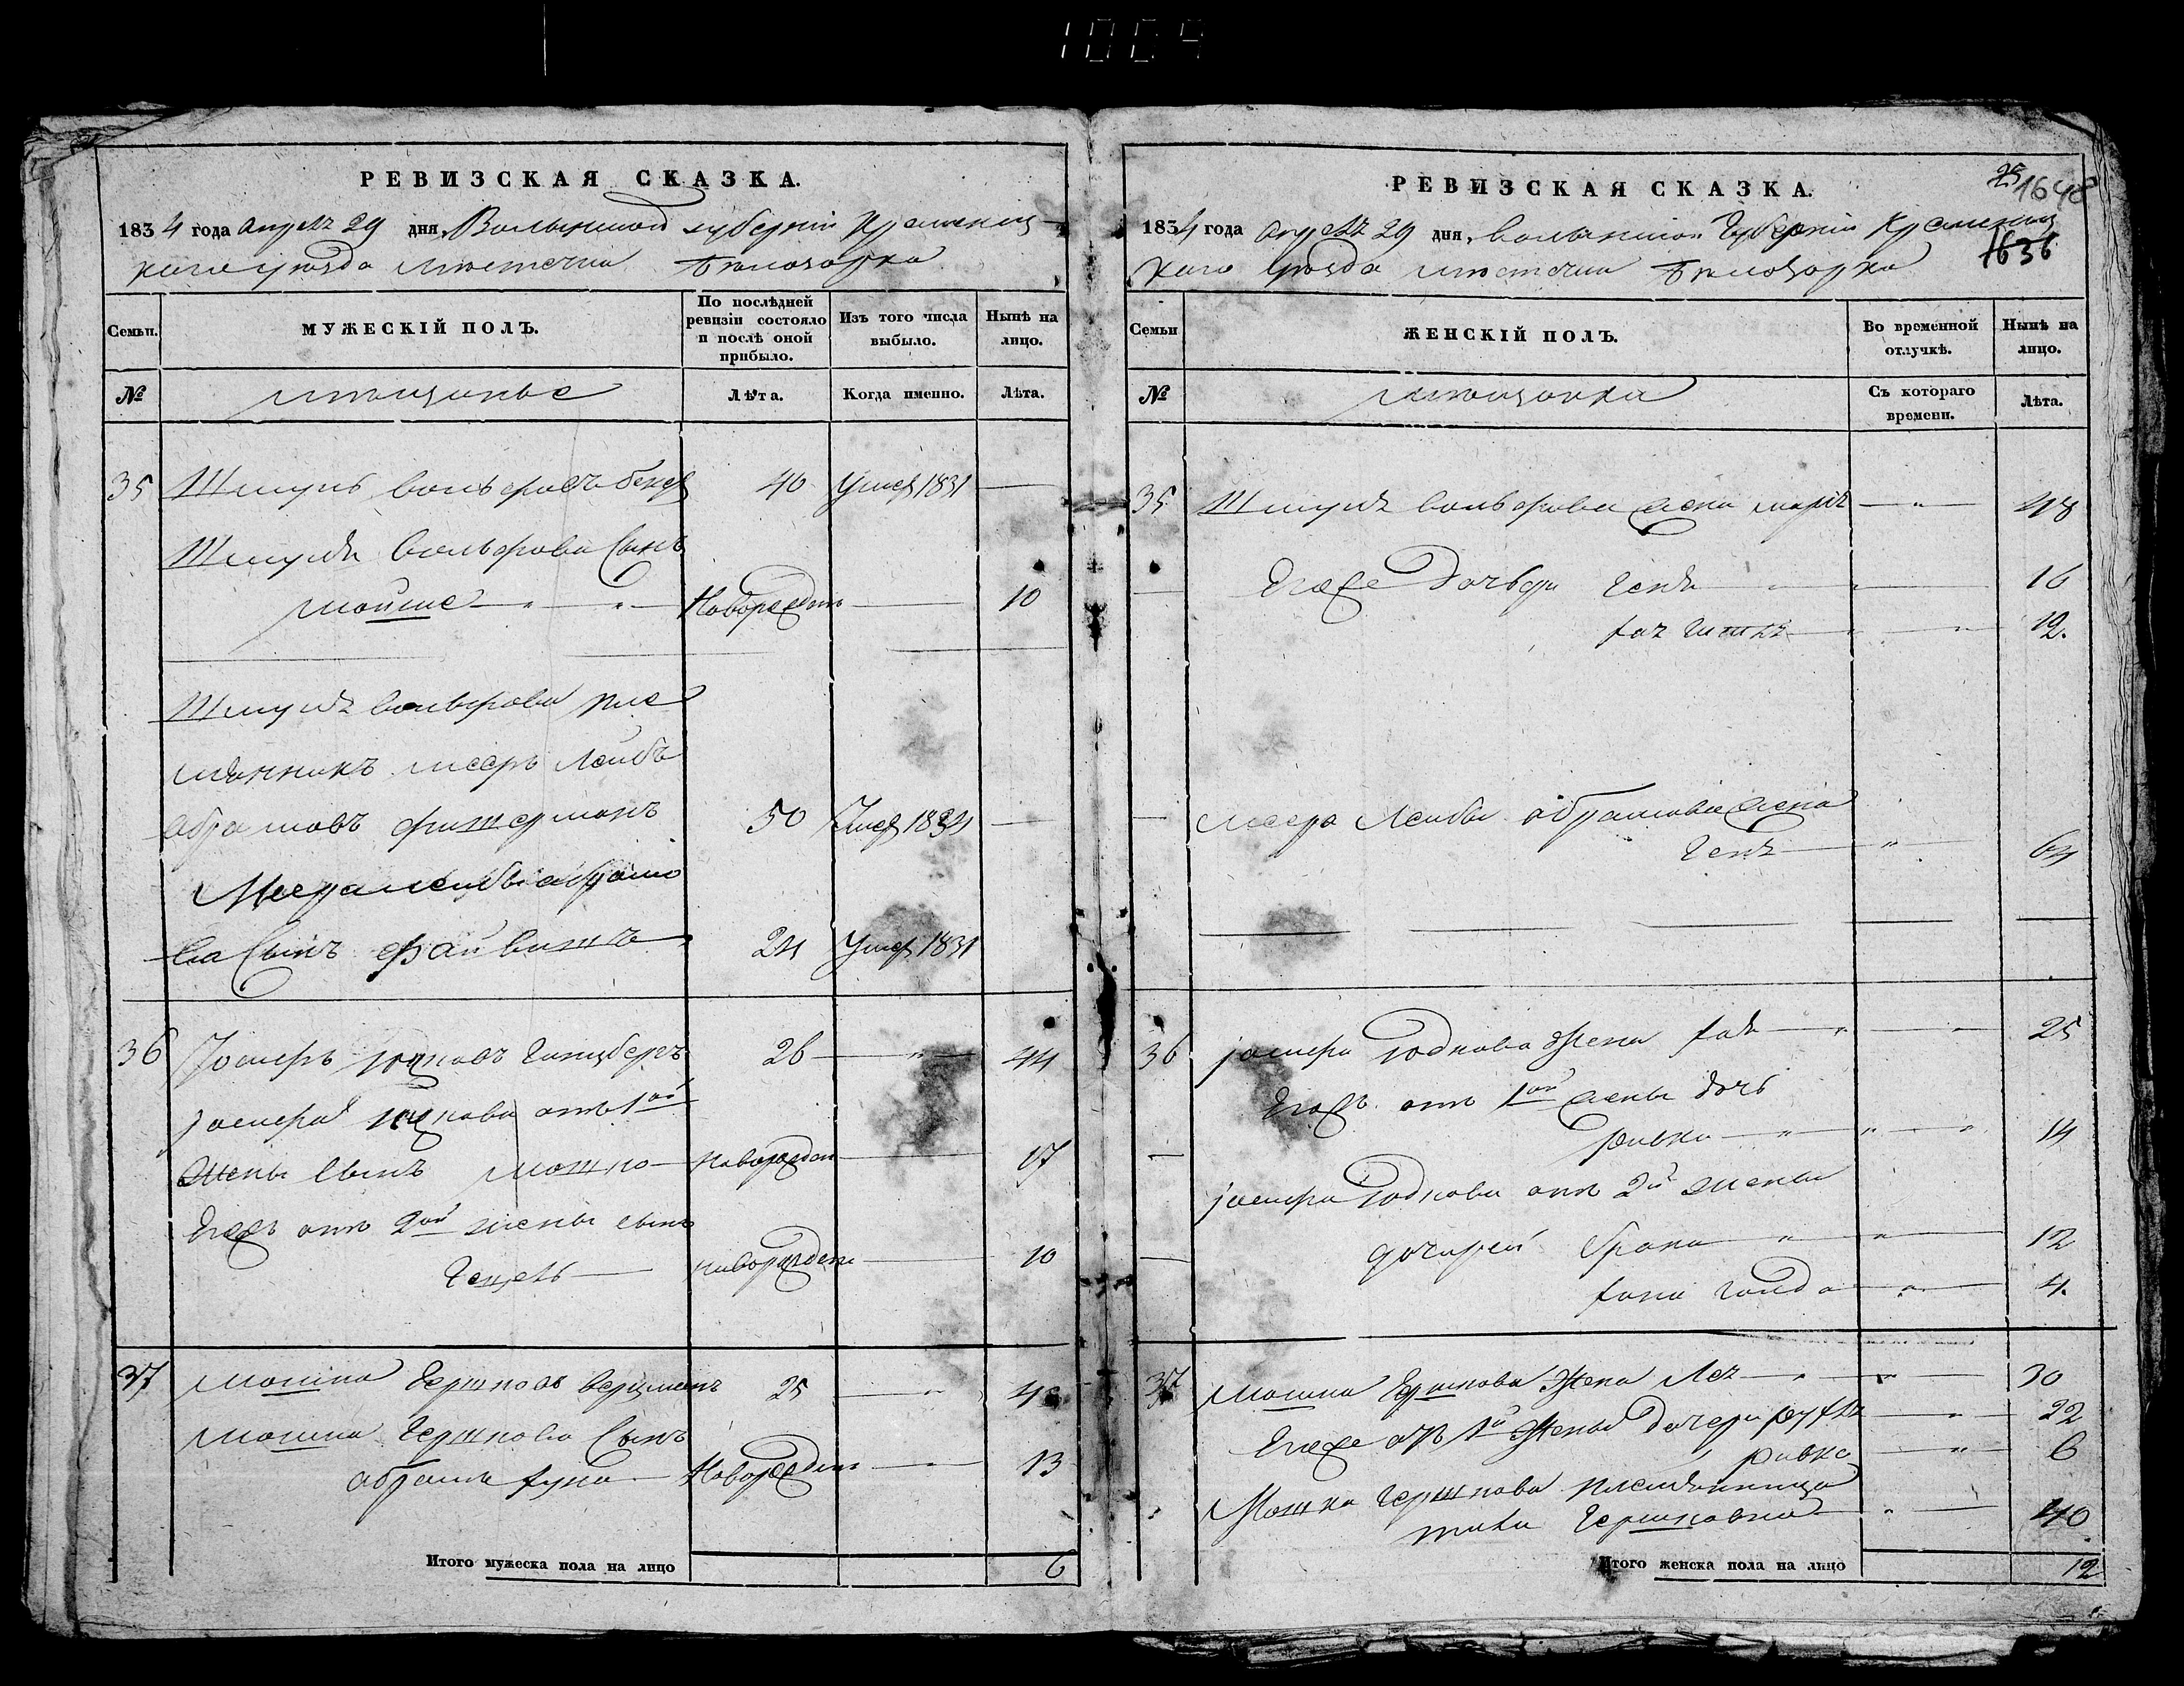 1009
РЕВИЗСКАЯ СКАЗКА.
1834 года апрель 29 дня, Волынской губерніи Кременец-
каго уѣзда мѣстечка Бѣлозорка
Семьи.
МУЖЕСКІЙ ПОЛЪ.
По послѣдней ревизіи состояло и послѣ оной прибыло.
Изъ того числа выбыло.
Нынѣ на лицо.
№
мѣщанъе
Лѣта.
Когда именно.
Лѣта.
35 Шмуль Вольфовъ 40 Умер 1831 —
Шмуля Вольфова Сынъ
Мойше — " — " — Новорожден — 10
Шмуля Вольфова пле
мянникъ Меер Лейбъ
абрамовъ фишерманъ 50 Умер 1834 —
Меера Лейбы абрамо
ва Сынъ Файвишъ 24 Умер 1831
36 Іосифъ Юдковъ Гинцбергъ 26 — " — 44
Іосифа Юдкова отъ 1ой
жены Сынъ Мошко — новорожден — 17
Егожъ отъ 2ой жены сынъ
Гецель — новорожден — 10
37 Мошко Гершковъ 25 — " —
Мошка Гершкова Сынъ
абрамъ — Новорожден — 13
Итого мужеска пола на лицо 6
25
1648
РЕВИЗСКАЯ СКАЗКА.
1834 года апрель 29 дня, Волынской Губерніи Кременец
каго Уѣзда мѣстечка Бѣлозорка
1636
Семьи
ЖЕНСКІЙ ПОЛЪ.
Во временной отлучкѣ.
Нынѣ на лицо.
№
мѣщанки
Съ котораго времени.
Лѣта.
35 Шмуля Вольфова жена — " — 48
Егоже Дочери Геня " — " — 16
— " — 12.
— Меера Лейбы абрамова жена
Геня — " — 64
36 Іосифа Юдкова Жена — " — 25
Егожъ отъ 1ой жены дочь
— ривка — " — " — " 14
Іосифа Юдкова отъ 2й жены
— дочерей — " — " — 12
— " — 4.
37 Мошка Гершкова Жена — " — 30
Егоже отъ 1й Жены Дочери — " — 22
ривка — " — 6
Мошка Гершкова племянница
Гершковна " — 40
Итого женска пола на лицо 12